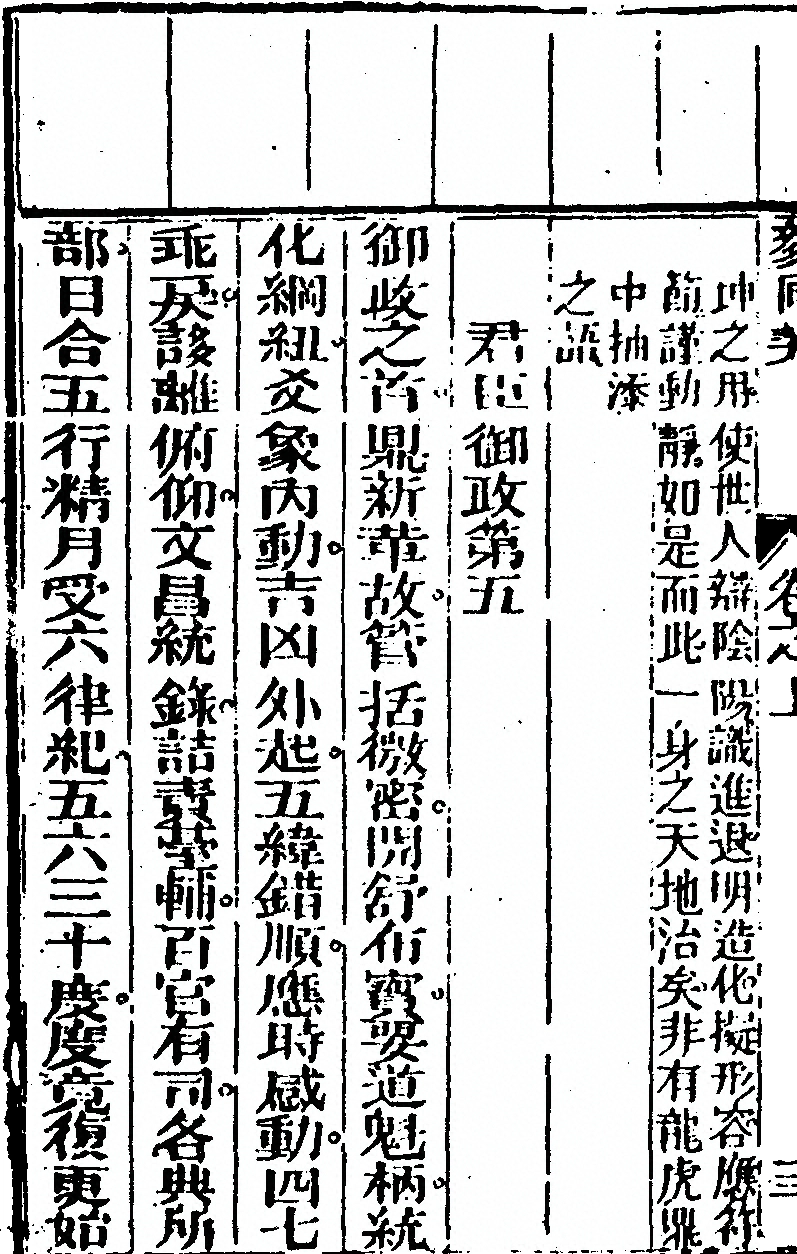 參同契 卷之上 三
坤之用使世人辯陰陽識進退明造化擬形容應符
節謹動靜如是而此一身之天地治矣非有龍虎鼎
中抽添
之
君臣御政第五
御政之首鼎新革故管括微密開舒布寶要道魁柄統
化綱紐爻象內動吉凶外起五緯錯順應時感動四七
乖戾誃離俯仰文昌統錄詰責臺輔百官有司各典所
部日合五行精月受六律紀五六三十度度竟復更始